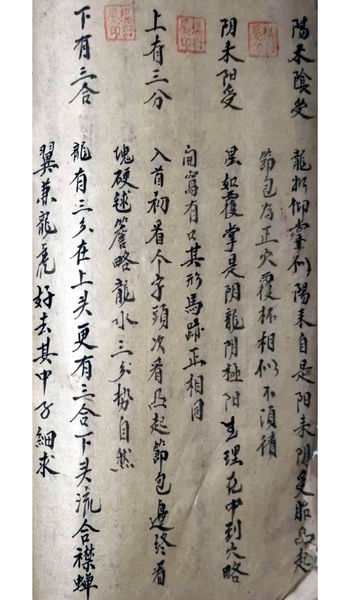 陽来陰受　龍如仰掌似陽来自是阳来阴受胎凸起
節包為正穴覆杯相似不須積
阴来阳受　星如覆掌是阴龍阴極阳生理在中到穴略
開窩有口其形馬跡正相同
上有三分　入首初看个字頭次看凸起節包邊終看
塊硬毬簷略龍水三分勢自然
下有三合　龍有三分在上头更有三合下头流合襟蝉
翼兼龍虎好去其中子細求